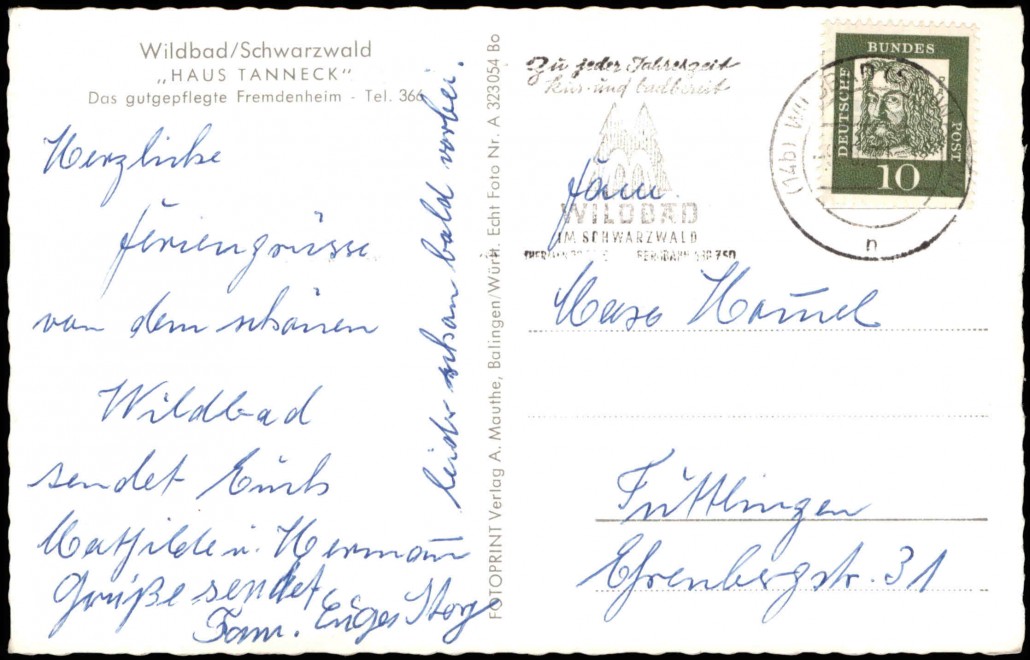 Wildbad/Schwarzwald
„HAUS TANNECK"
Das gutgepflegte Fremdenheim - Tel. 366
Herzliche
Feriengrüsse
von dem schönen
Wildbad
sendet Euch
Mathilde u. Hermann
Grüße sendet
Fam.
leider schon bald vorbei.
FOTOPRINT Verlag A. Mauthe, Balingen/Württ. Echt Foto Nr. A 323054 Bo
Zu jeder Jahreszeit
kur- und badbereit
WILDBAD
IM SCHWARZWALD
DEUTSCHE
BUNDES
POST
10
(14b) WILDBAD
n
Fam.
Ehrenbergstr. 31